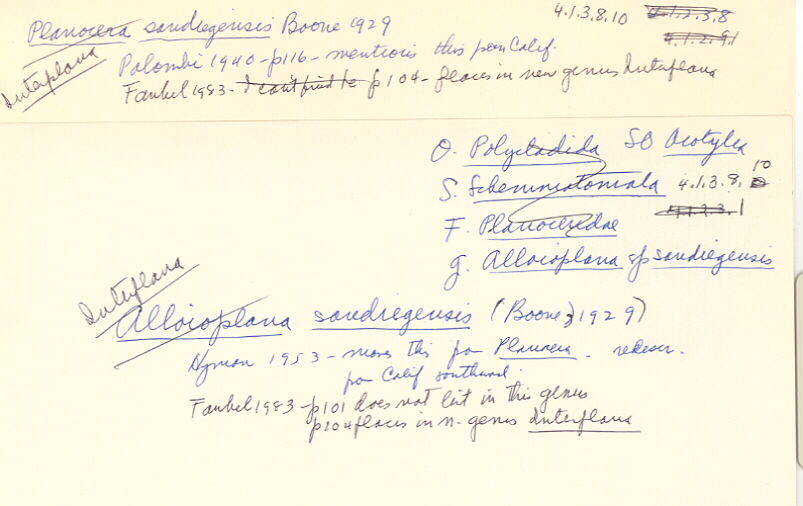 Planocera sandiegensis Boone 1929
4.1.3.8.10 4.1.2.3.8
4.1.2.9.1
Interplana
Palombi 1940-p116-mentions this from Calif.
Faubel 1983-I can't find it p104-places in new genus Interplana
O. Polycladida SO Acotylea
S. Schemmatommata 4.1.3.8.10
F. Planoceridae
g. Alloioplana sp sandiegensis
Interplana
Alloioplana sandiegensis (Boone, 1929)
Hyman 1953-moves this from Planocera. redescr.
from Calif southward.
Faubel 1983-p101 does not list in this genus
p104 places in n. genus Interplana